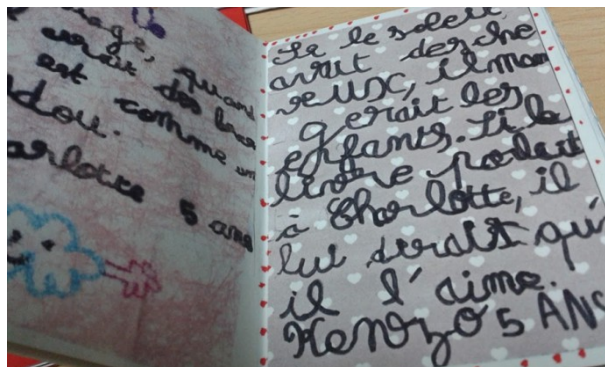 nuage, quand
avait des bras
est comme un
dou.
arlotte 5 ans
Si le soleil
avait des che
veux, il man
gerait les
enfants. Si le
livre parlait
à Charlotte, il
lui dirait qu'
il l'aime.
Kenzo 5 ANS